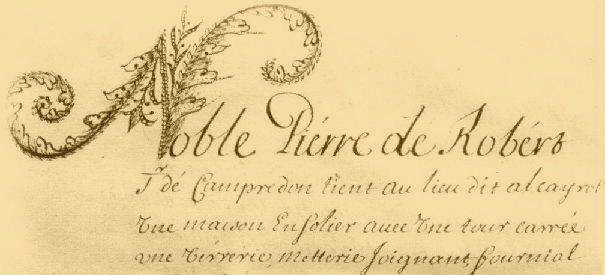 Noble Piérre de Robért
Sr dé Campredon tient au lieu dit al cayrol
Vne maison En solier auec vne tour carrée
vne verrerie, metterie Joignant fournial